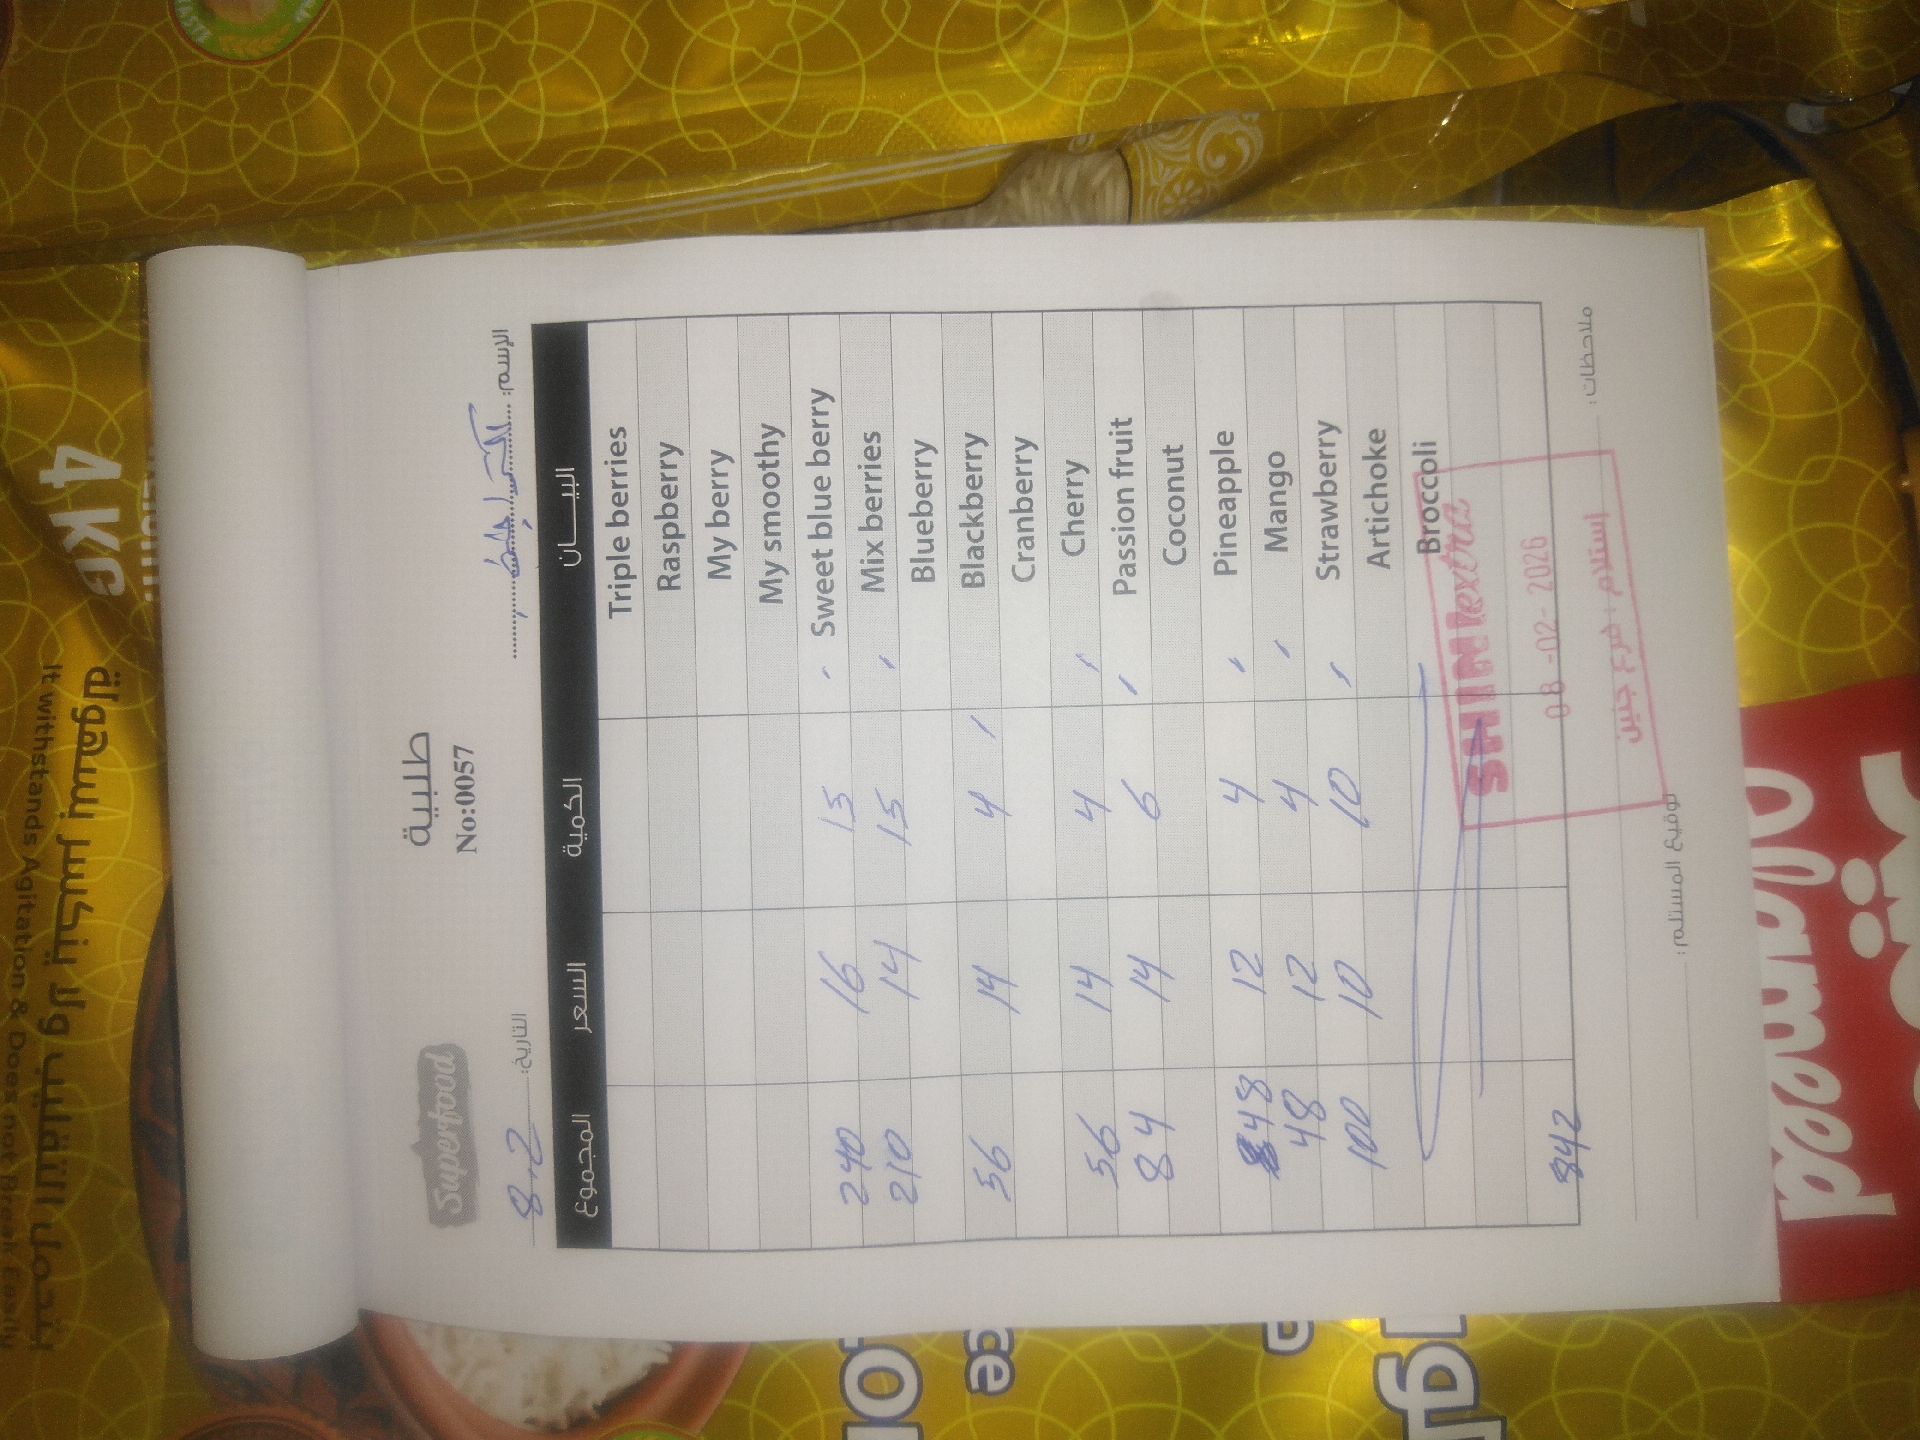 طلبية
No:0057
Superfood
الإسم:
التاريخ: 8.2
البيـــان الكمية السعر المجموع
Triple berries
Raspberry
My berry
My smoothy
Sweet blue berry 15 16 240
Mix berries 15 14 210
Blueberry
Blackberry 4 14 56
Cranberry
Cherry 4 14 56
Passion fruit 6 14 84
Coconut
Pineapple 4 12 48
Mango 4 12 48
Strawberry 10 10 100
Artichoke
Broccoli
842
SHINIextra
08-02-2026
إستلام، فرع جنين
ملاحظات:
توقيع المستلم:
4KG
يتحمل التقليب ولا يتكسر بسهولة
It withstands Agitation & Does not Break Easily